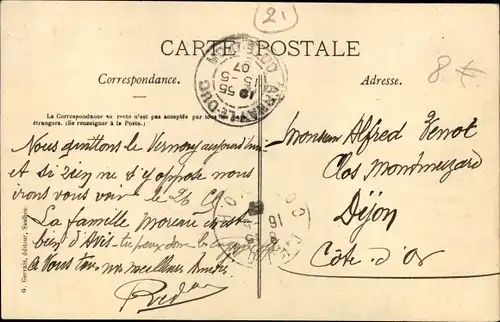 21
CARTE POSTALE
8 €
Correspondance.
Adresse.
La Correspondance au recto n'est pas acceptée par tous les pays
étrangers. (Se renseigner à la Poste.)
Nous quittons le Vernoy aujourd'hui
et si rien ne s'y oppose nous
irons vous voir le 26 Ct
La famille Moreau est
bien d'Avis
A Vous tous nos meilleures Amitiés
Monsieur Alfred
Clos Montmuzard
Dijon
Côte-d'Or
G. Gervais, éditeur, Saulieu.
ARNAY-LE-DUC
CÔTE-D'OR
10 55
5-5
07